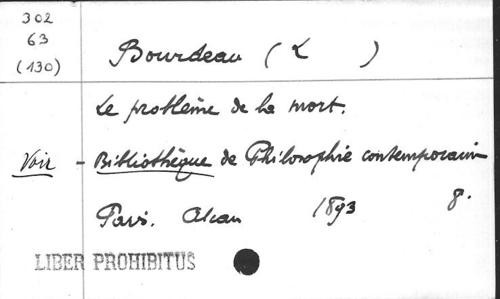 302
63
(130)
Bourdeau (L )
Le problème de la mort.
Voir - Bibliothèque de Philosophie contemporain
Paris. Alcan 1893 8.
LIBER PROHIBITUS